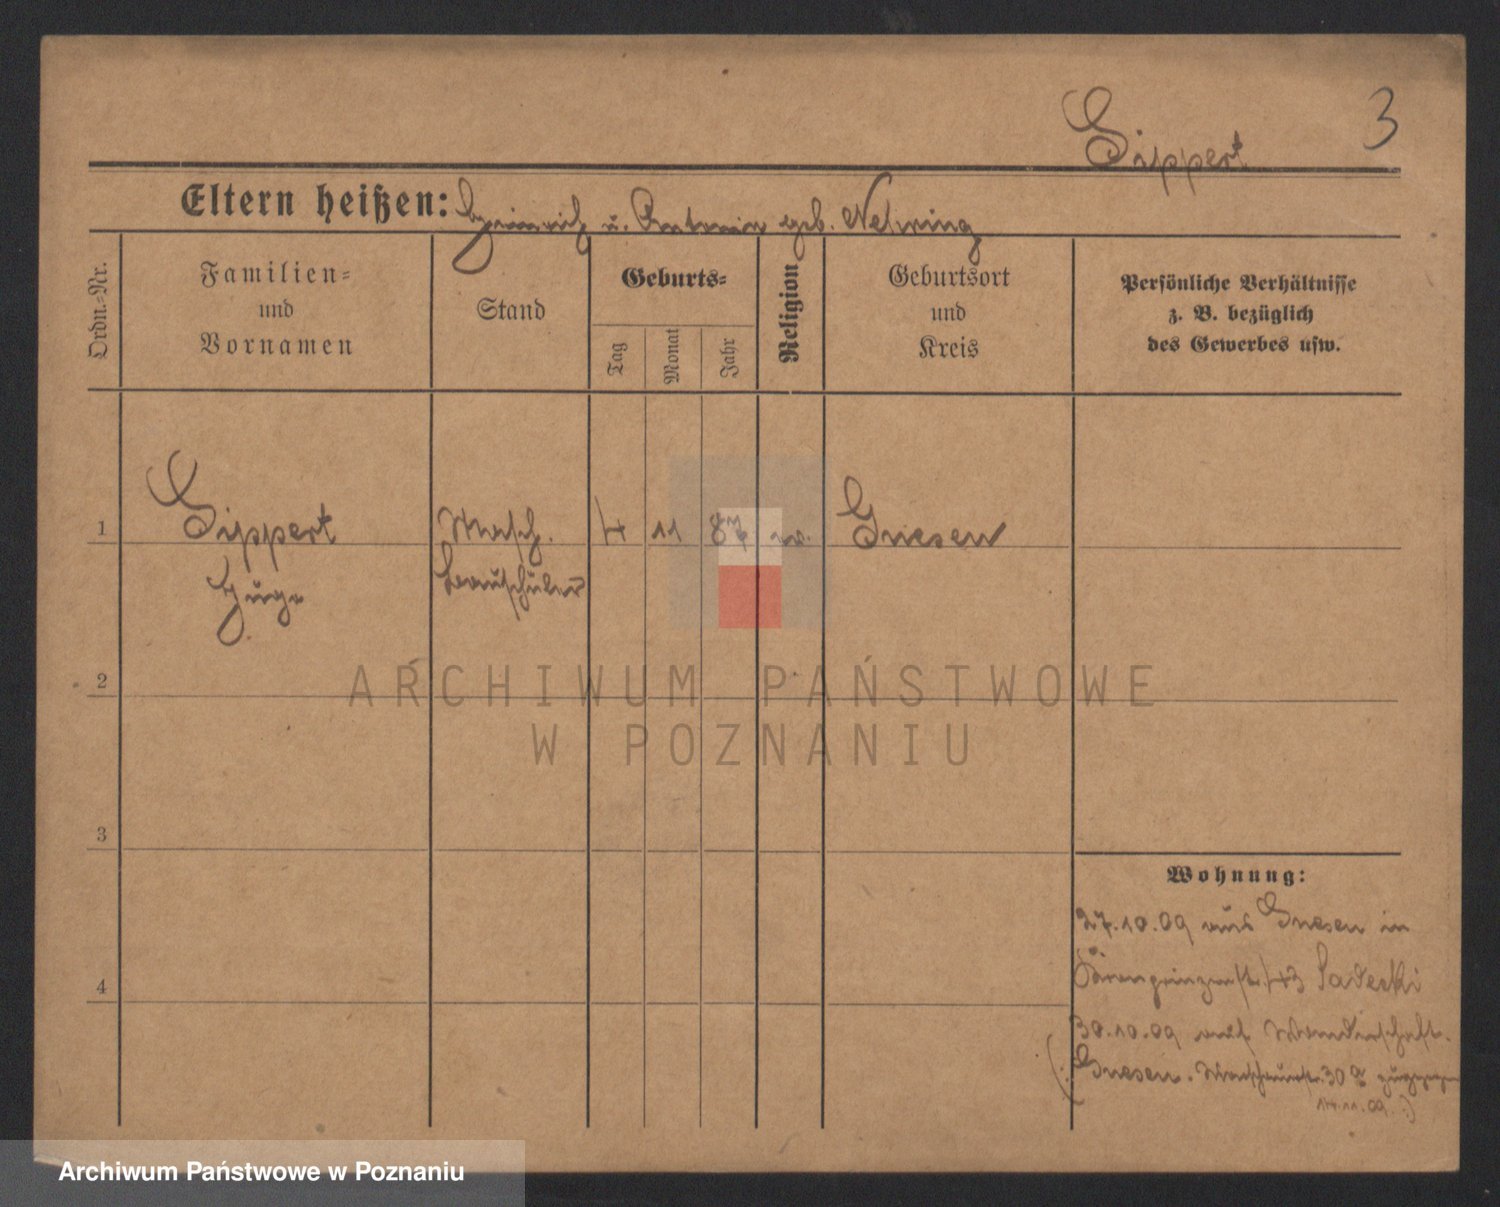 3
Sippert
Eltern heißen: Heinrich u. Antonie geb. Nehring
Ordn.-Nr.
Familien-
und
Vornamen
Stand
Geburts-
Tag
Monat
Jahr
Religion
Geburtsort
und
Kreis
Persönliche Verhältnisse
z. B. bezüglich
des Gewerbes usw.
1
Sippert
Hugo
Masch.
bauschüler
4
11
87
Gnesen
2
3
4
Wohnung:
27.10.09 aus Gnesen in
43 Sadecki
30.10.09 auf Wanderschaft.
(: Gnesen. 30
14.11.09. :)
ARCHIWUM PAŃSTWOWE
W POZNANIU
Archiwum Państwowe w Poznaniu